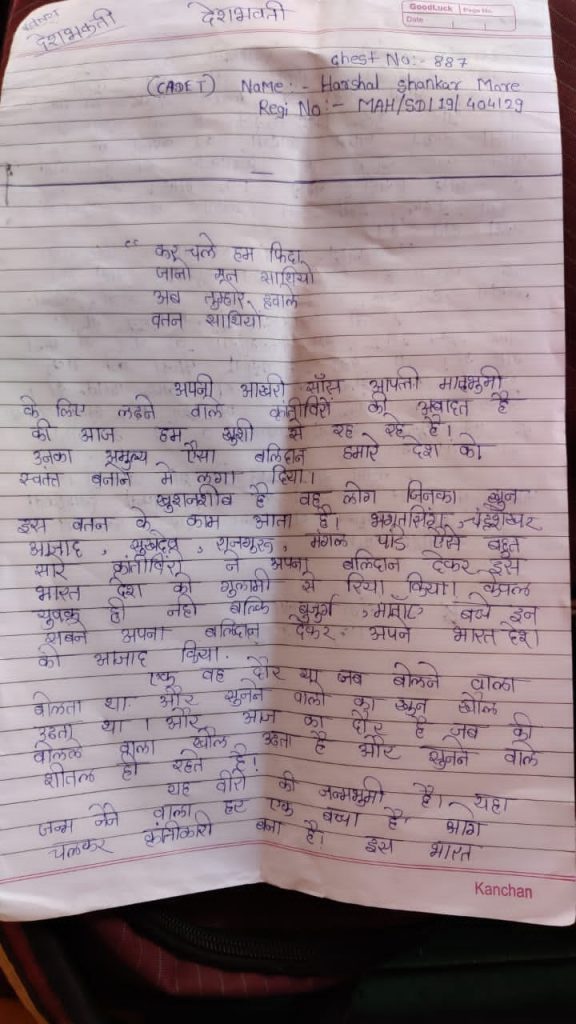 देशभक्ती
देशभक्ती
GoodLuck Page No.
Date
Chest No:- 887
(CADET) Name:- Harshal Shankar More
Regi No:- MAH/SD/19/404129
“ कर चले हम फिदा
जानो तन साथियो
अब तुम्हारे हवाले
वतन साथियो
अपनी आखरी साँस आपली मातृभुमी
के लिए लढने वाले क्रांतीविरो की अबादत है
की आज हम खुशी से रह रहे है।
उनका अमुल्य ऐसा बलिदान हमारे देश को
स्वतंत बनाने मे लगा दिया।
खुशनशीब है वह लोग जिनका खुन
इस वतन के काम आता है। भगतसिंग, चंद्रशेखर
आझाद, सुखदेव, राजगुरू, मंगल पांडे ऐसे बहुत
सारे क्रांतीविरो ने अपना बलिदान देकर इस
भारत देश को गुलामी से रिया किया। केवल
युवक ही नही बल्कि बुजुर्ग, माताए बच्चे इन
सबने अपना बलिदान देकर अपने भारत देश
को आजाद किया.
एक वह दौर था जब बोलने वाला
बोलता था और सुनने वालो का खुन खौल
उठता था। और आज का दौर है जब की
बोलने वाला खौल उठता है और सुनने वाले
शीतल हो रहते है!
यह वीरो की जन्मभुमी है। यहा
जन्म लेने वाला हर एक बच्चा है आगे
चलकर क्रांतीकारी बना है। इस भारत
Kanchan